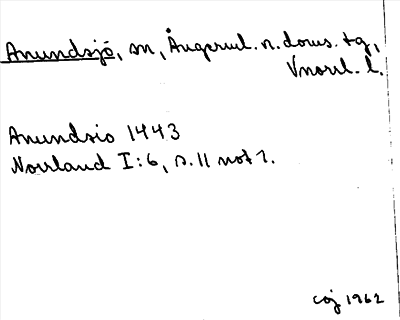 Anundsjö, sn, Ångerml. n. doms. tg,
Vnorrl. l.
Anundsio 1443
Norrland I:6, s. 11 not 1.
coj 1962